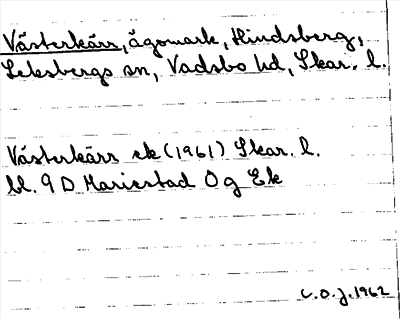 Västerkärr, ägomark, Hindsberg,
Leksbergs sn, Vadsbo hd, Skar. l.
Västerkärr ek (1961) Skar. l.
bl. 9 D Mariestad Og Ek
C.O.J. 1962